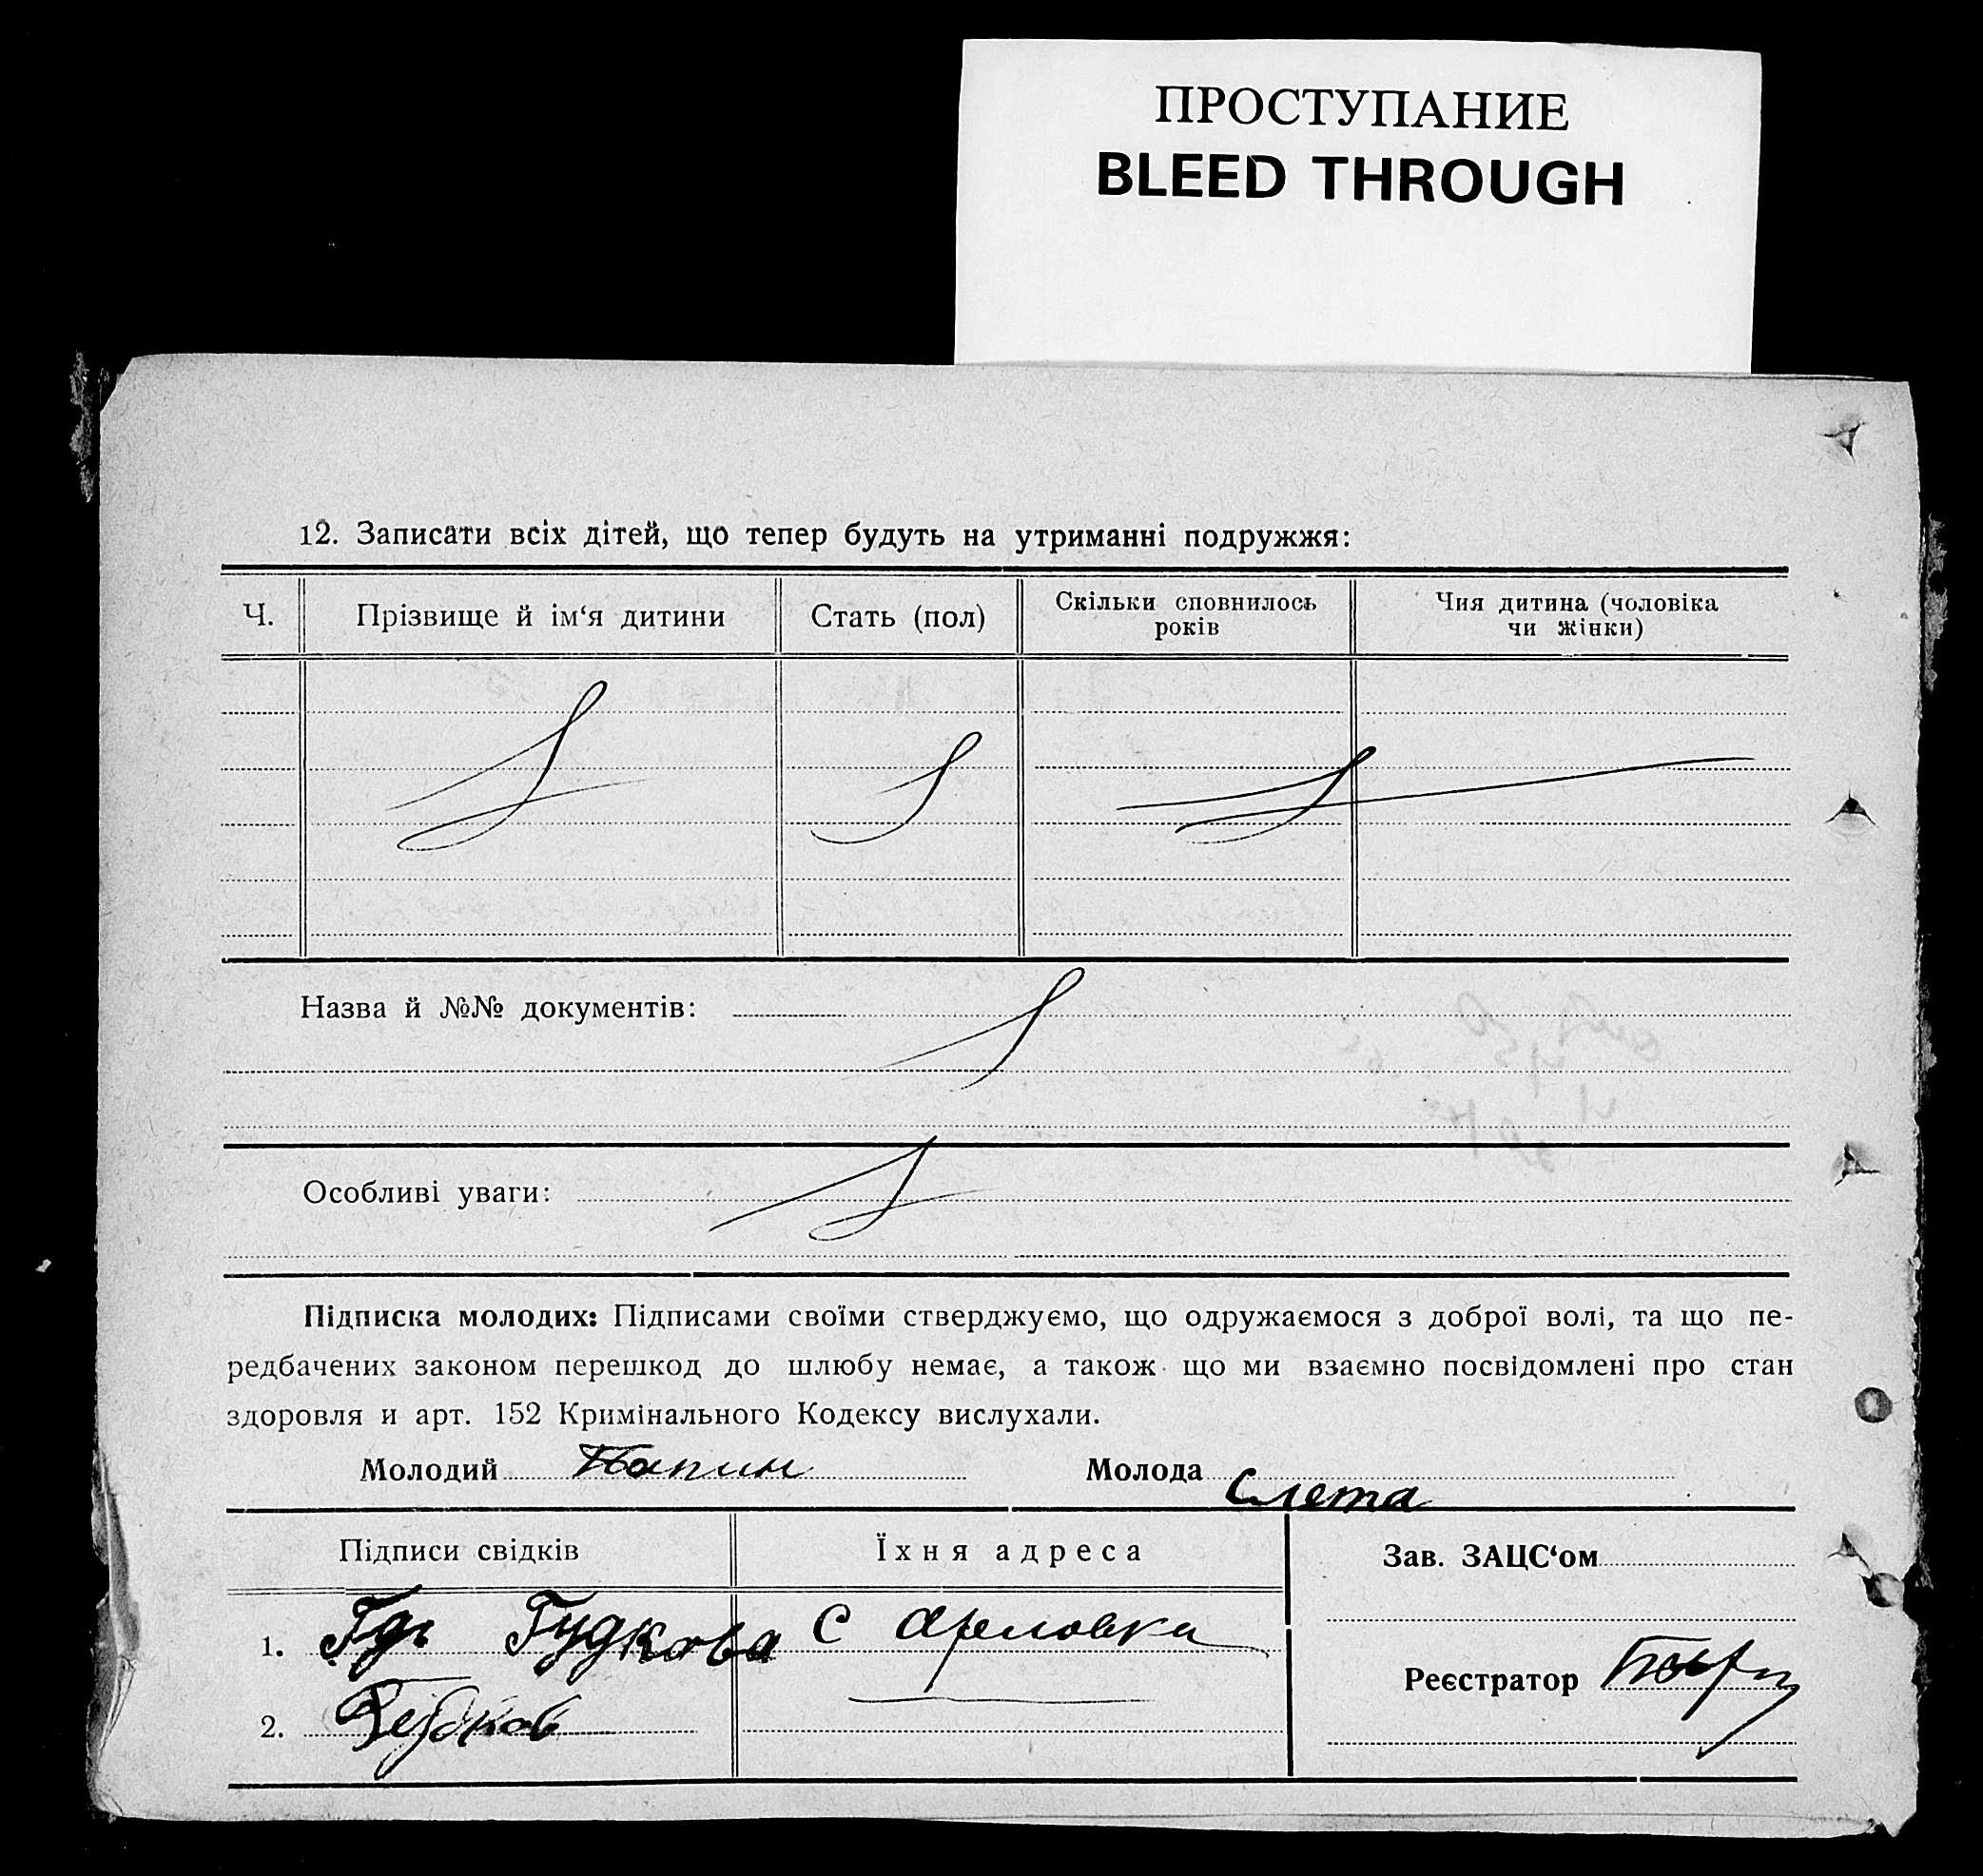 ПРОСТУПАНИЕ
BLEED THROUGH
12. Записати всіх дітей, що тепер будуть на утриманні подружжя:
Ч. Прізвище й ім‘я дитини Стать (пол) Скільки сповнилось років Чия дитина (чоловіка чи жінки)
Назва й №№ документів:
Особливі уваги:
Підписка молодих: Підписами своїми стверджуємо, що одружаємося з доброї волі, та що пе-
редбачених законом перешкод до шлюбу немає, а також що ми взаємно посвідомлені про стан
здоровля и арт. 152 Кримінального Кодексу вислухали.
Молодий Папин Молода Слета
Підписи свідків Їхня адреса Зав. ЗАЦС‘ом
1. Гудкова С Орловка
Реєстратор
2.